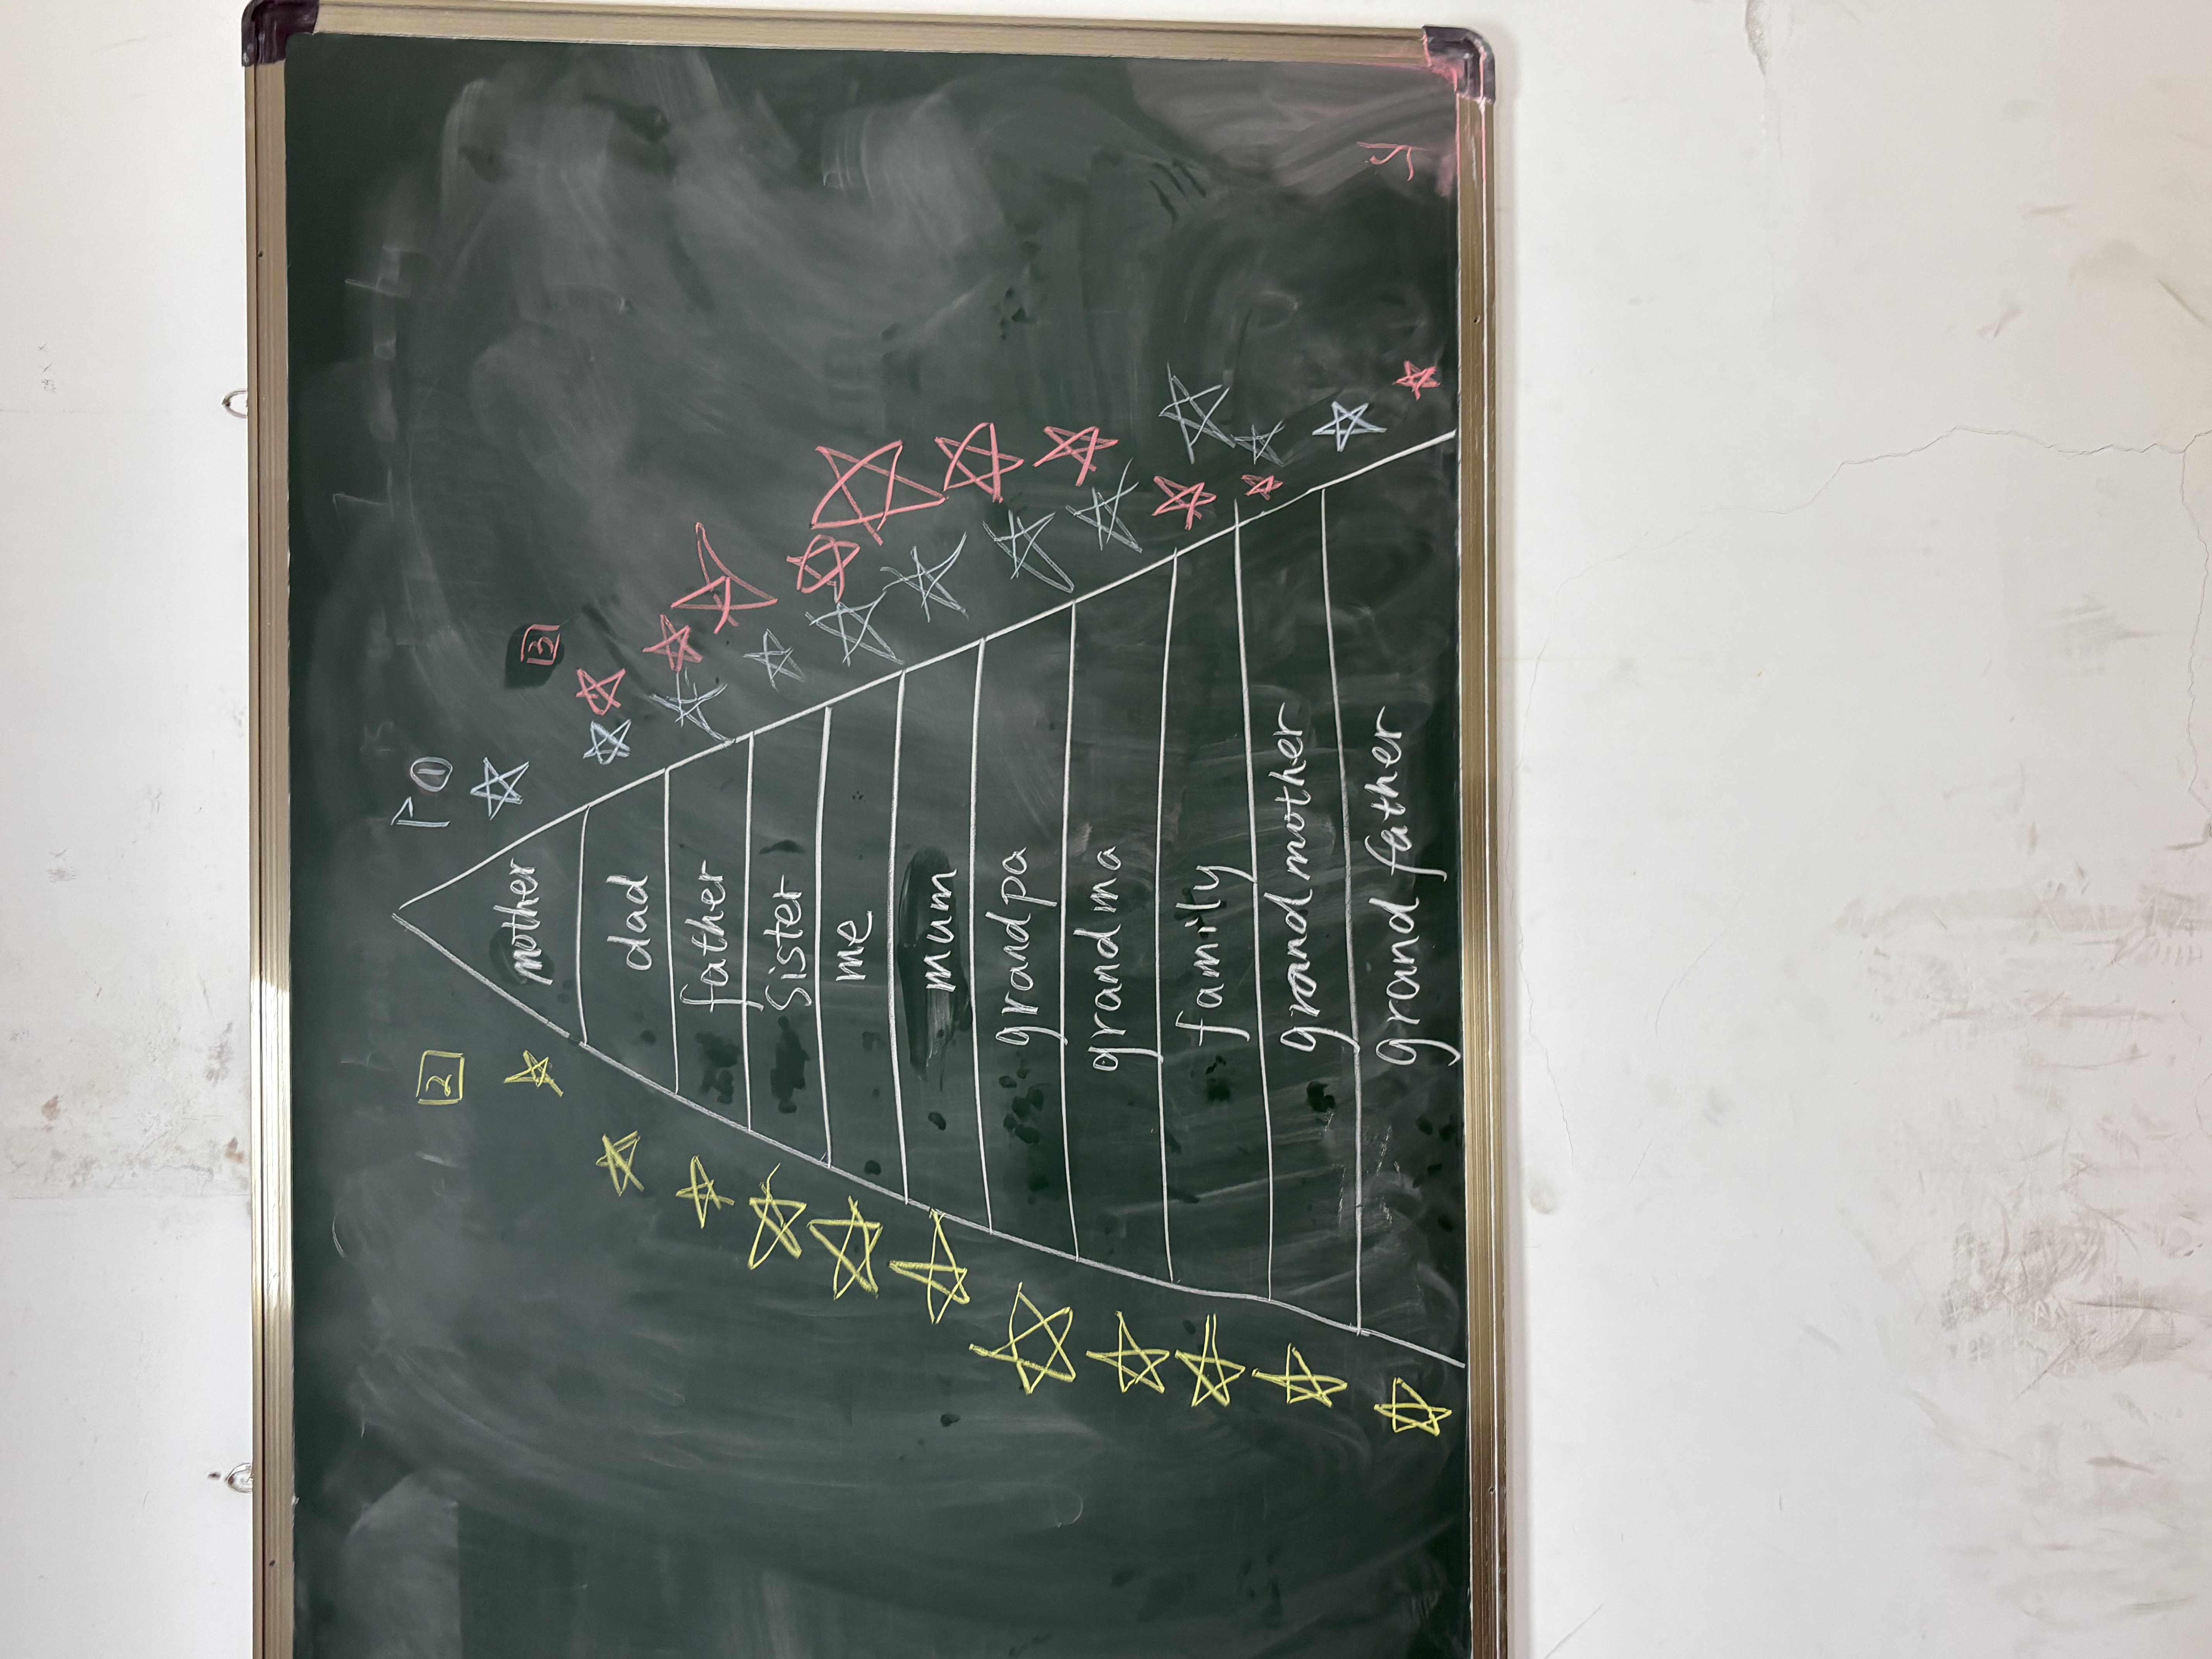 ①
2
3
mother
dad
father
Sister
me
mum
grandpa
grandma
family
grandmother
grandfather